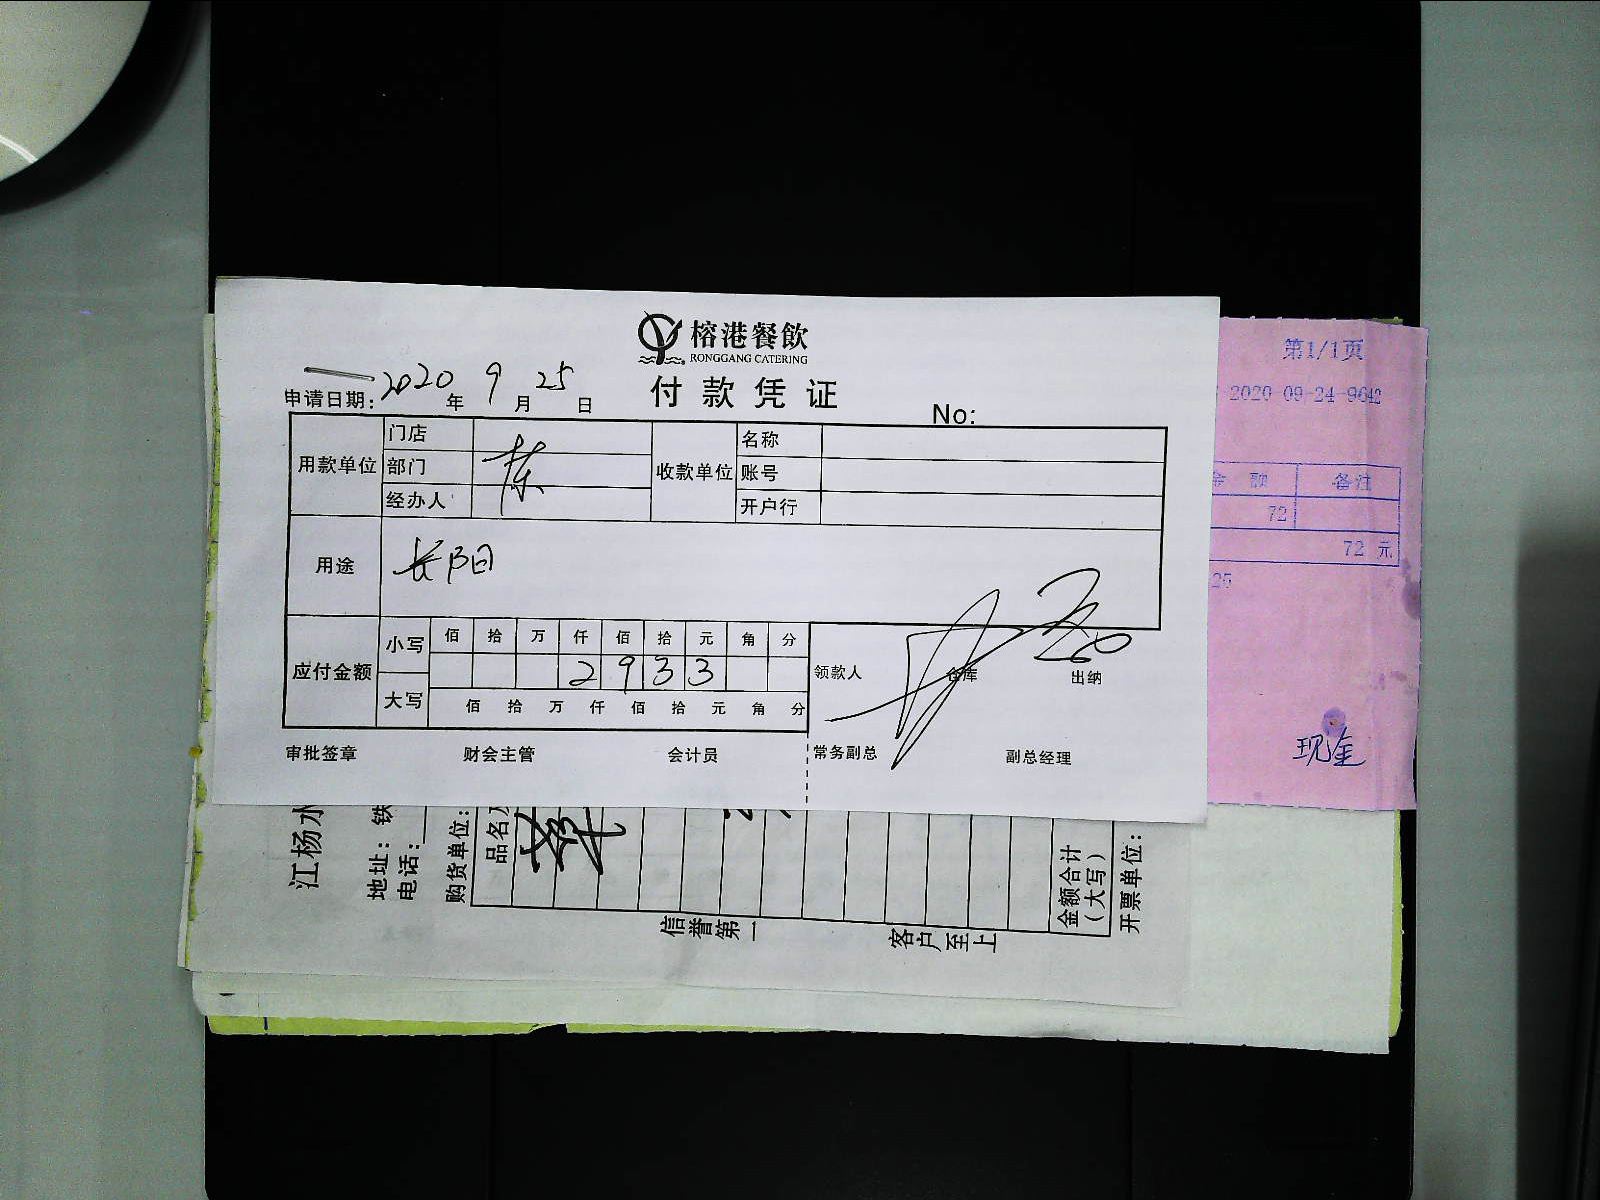 榕港餐飲
RONGGANG CATERING
付款凭证
申请日期: 2020 年 9 月 25 日
No:
用款单位 门店 收款单位 名称
部门 账号
经办人 开户行
用途 长阳
应付金额 小写 佰 拾 万 仟 佰 拾 元 角 分
2 9 3 3
大写 佰 拾 万 仟 佰 拾 元 角 分
领款人 仓库 出纳
审批签章 财会主管 会计员 常务副总 副总经理
第1/1页
2020-09-24-9642
金 额 备注
72
72 元
25
现金
江杨水
地址: 铁
电话:
购货单位:
品名
金额合计
(大写)
开票单位:
信誉第一
客户至上